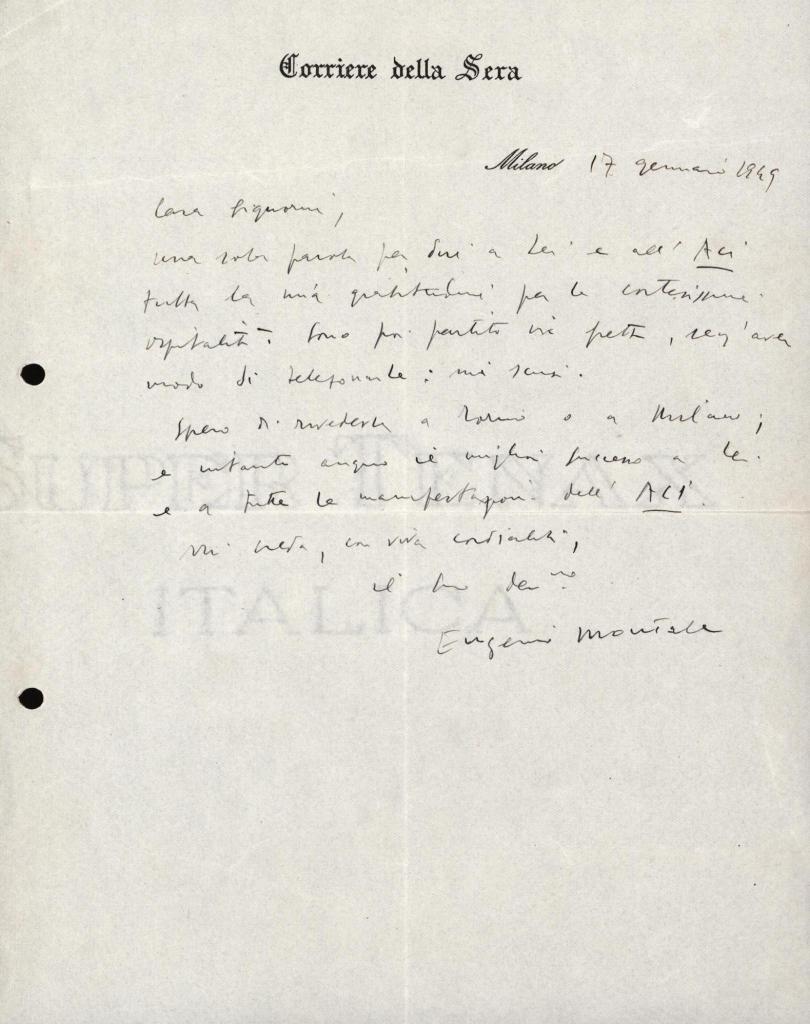 Corriere della Sera
Milano 17 gennaio 1949
Cara Signorina,
una sola parola per dire a Lei e all' Aci
tutta la mia gratitudine per la cortesissima
ospitalità. Sono poi partito in fretta, senz'aver
modo di telefonarle: mi scusi.
Spero di rivederla a Torino o a Milano;
e intanto auguro il miglior successo a Lei
e a tutte le manifestazioni dell' ACI.
Mi creda, con viva cordialità,
il suo dev.mo
Eugenio Montale
SUPER TENAX
ITALICA